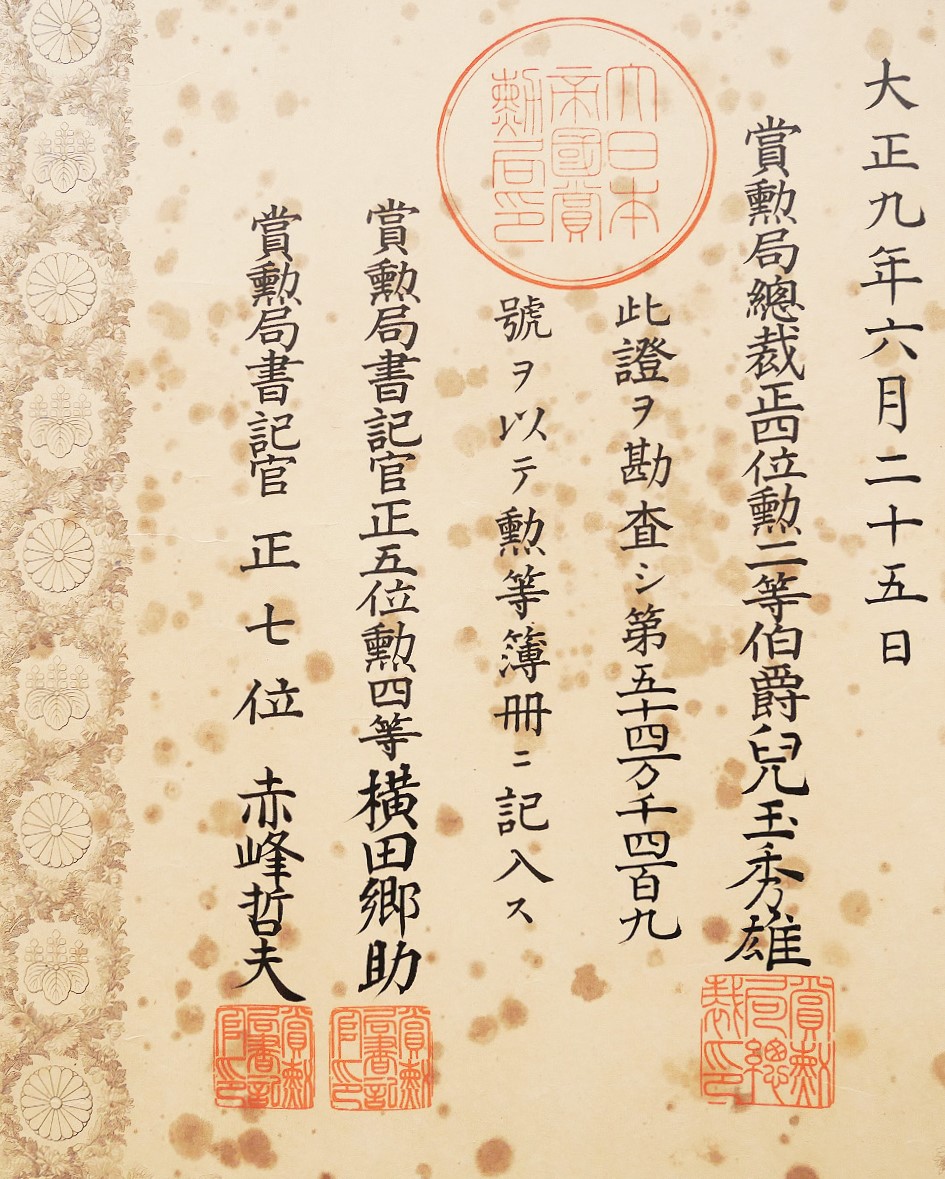 大正九年六月二十五日
賞勲局總裁正四位勲二等伯爵兒玉秀雄
賞勲局總裁印
大日本帝國賞勲局印
此證ヲ勘査シ第五十四万千四百九
號ヲ以テ勲等簿册ニ記入ス
賞勲局書記官正五位勲四等横田郷助
賞勲局書記官印
賞勲局書記官正七位赤峰哲夫
賞勲局書記官印